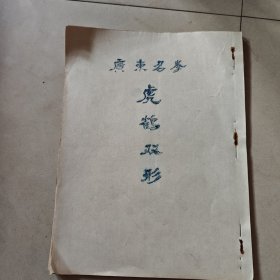 廣東名拳
虎鶴双形